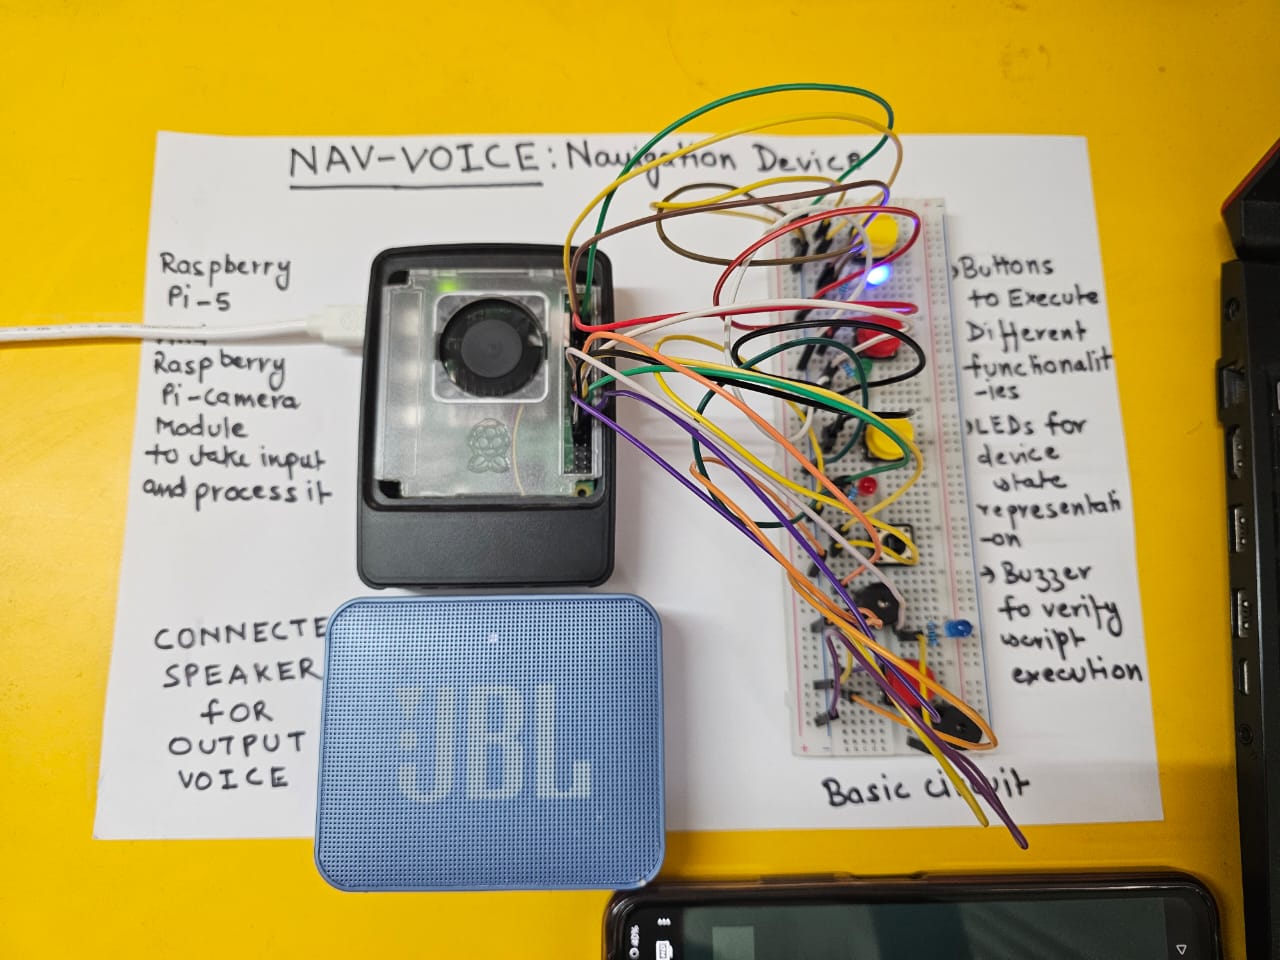 NAV-VOICE: Navigation Device
Raspberry
Pi-5
Raspberry
Pi-Camera
Module
to take input
and process it
CONNECTE
SPEAKER
fOR
OUTPUT
VOICE
JBL
→Buttons
to Execute
Different
functionalit
-ies
→LEDs for
device
state
representati
-on
→ Buzzer
to verify
script
execution
Basic circuit
40%